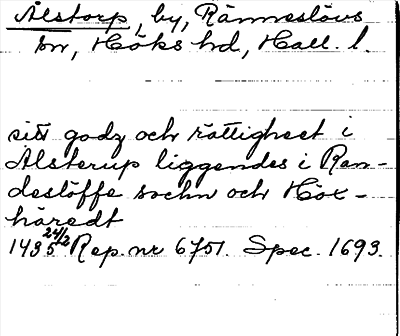 Alstorp, by, Ränneslövs
sn, Höks hd, Hall. l.
sitt godz och rättigheet i
Alsterup liggendes i Ren-
deslöffe sochn och Höx-
häredt
1435 24/2 Rep. nr 6751. Spec. 1693.